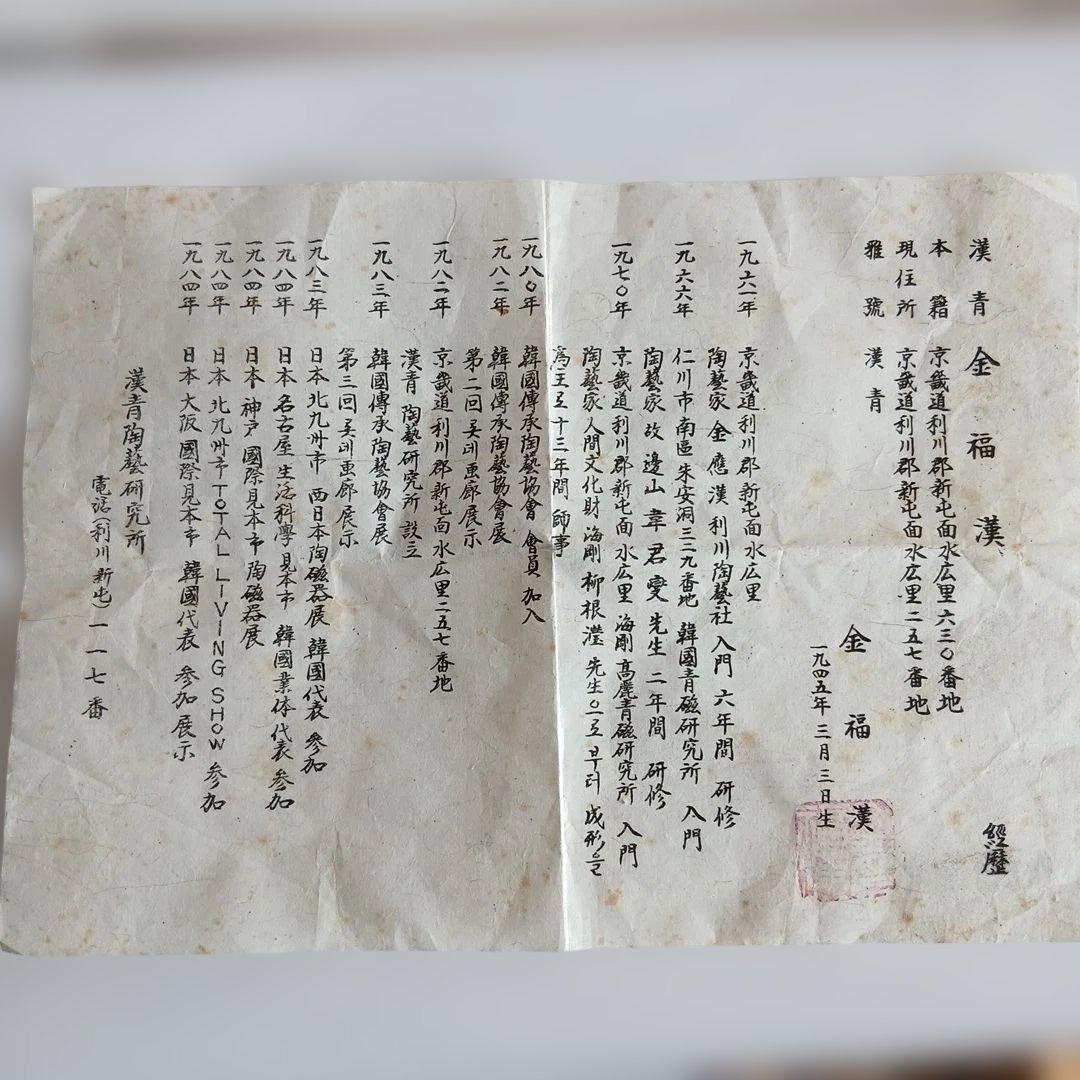 漢青 金福漢 經歷
本籍 京畿道利川郡新屯面水広里六三〇番地
現住所 京畿道利川郡新屯面水広里二五七番地
雅號 漢青
金福漢
一九四五年三月三日生
一九六一年 京畿道利川郡新屯面水広里
陶藝家 金應漢 利川陶藝社 入門 六年間 研修
一九六六年 仁川市南區朱安洞三二九番地 韓國青磁研究所 入門
陶藝家 故邊山 韋君燮 先生 二年間 研修
一九七〇年 京畿道利川郡新屯面水広里 海剛高麗青磁研究所 入門
陶藝家人間文化財 海剛 柳根瀅 先生으로부터 成形을
爲主로 十三年間 師事
一九八〇年 韓國傳承陶藝協會 會員 加入
一九八二年 韓國傳承陶藝協會展
第二回 画廊展示
一九八二年 京畿道利川郡新屯面水広里二五七番地
漢青陶藝研究所 設立
一九八三年 韓國傳承陶藝協會展
第三回 画廊展示
一九八三年 日本 北九州市 西日本陶磁器展 韓國代表 參加
一九八四年 日本 名古屋 生活科學見本市 韓國業体代表 參加
一九八四年 日本 神戸 國際見本市 陶磁器展
一九八四年 日本 北九州市 TOTAL LIVING SHOW 參加
一九八四年 日本 大阪 國際見本市 韓國代表 參加展示
漢青陶藝研究所
電話(利川新屯)一一七番